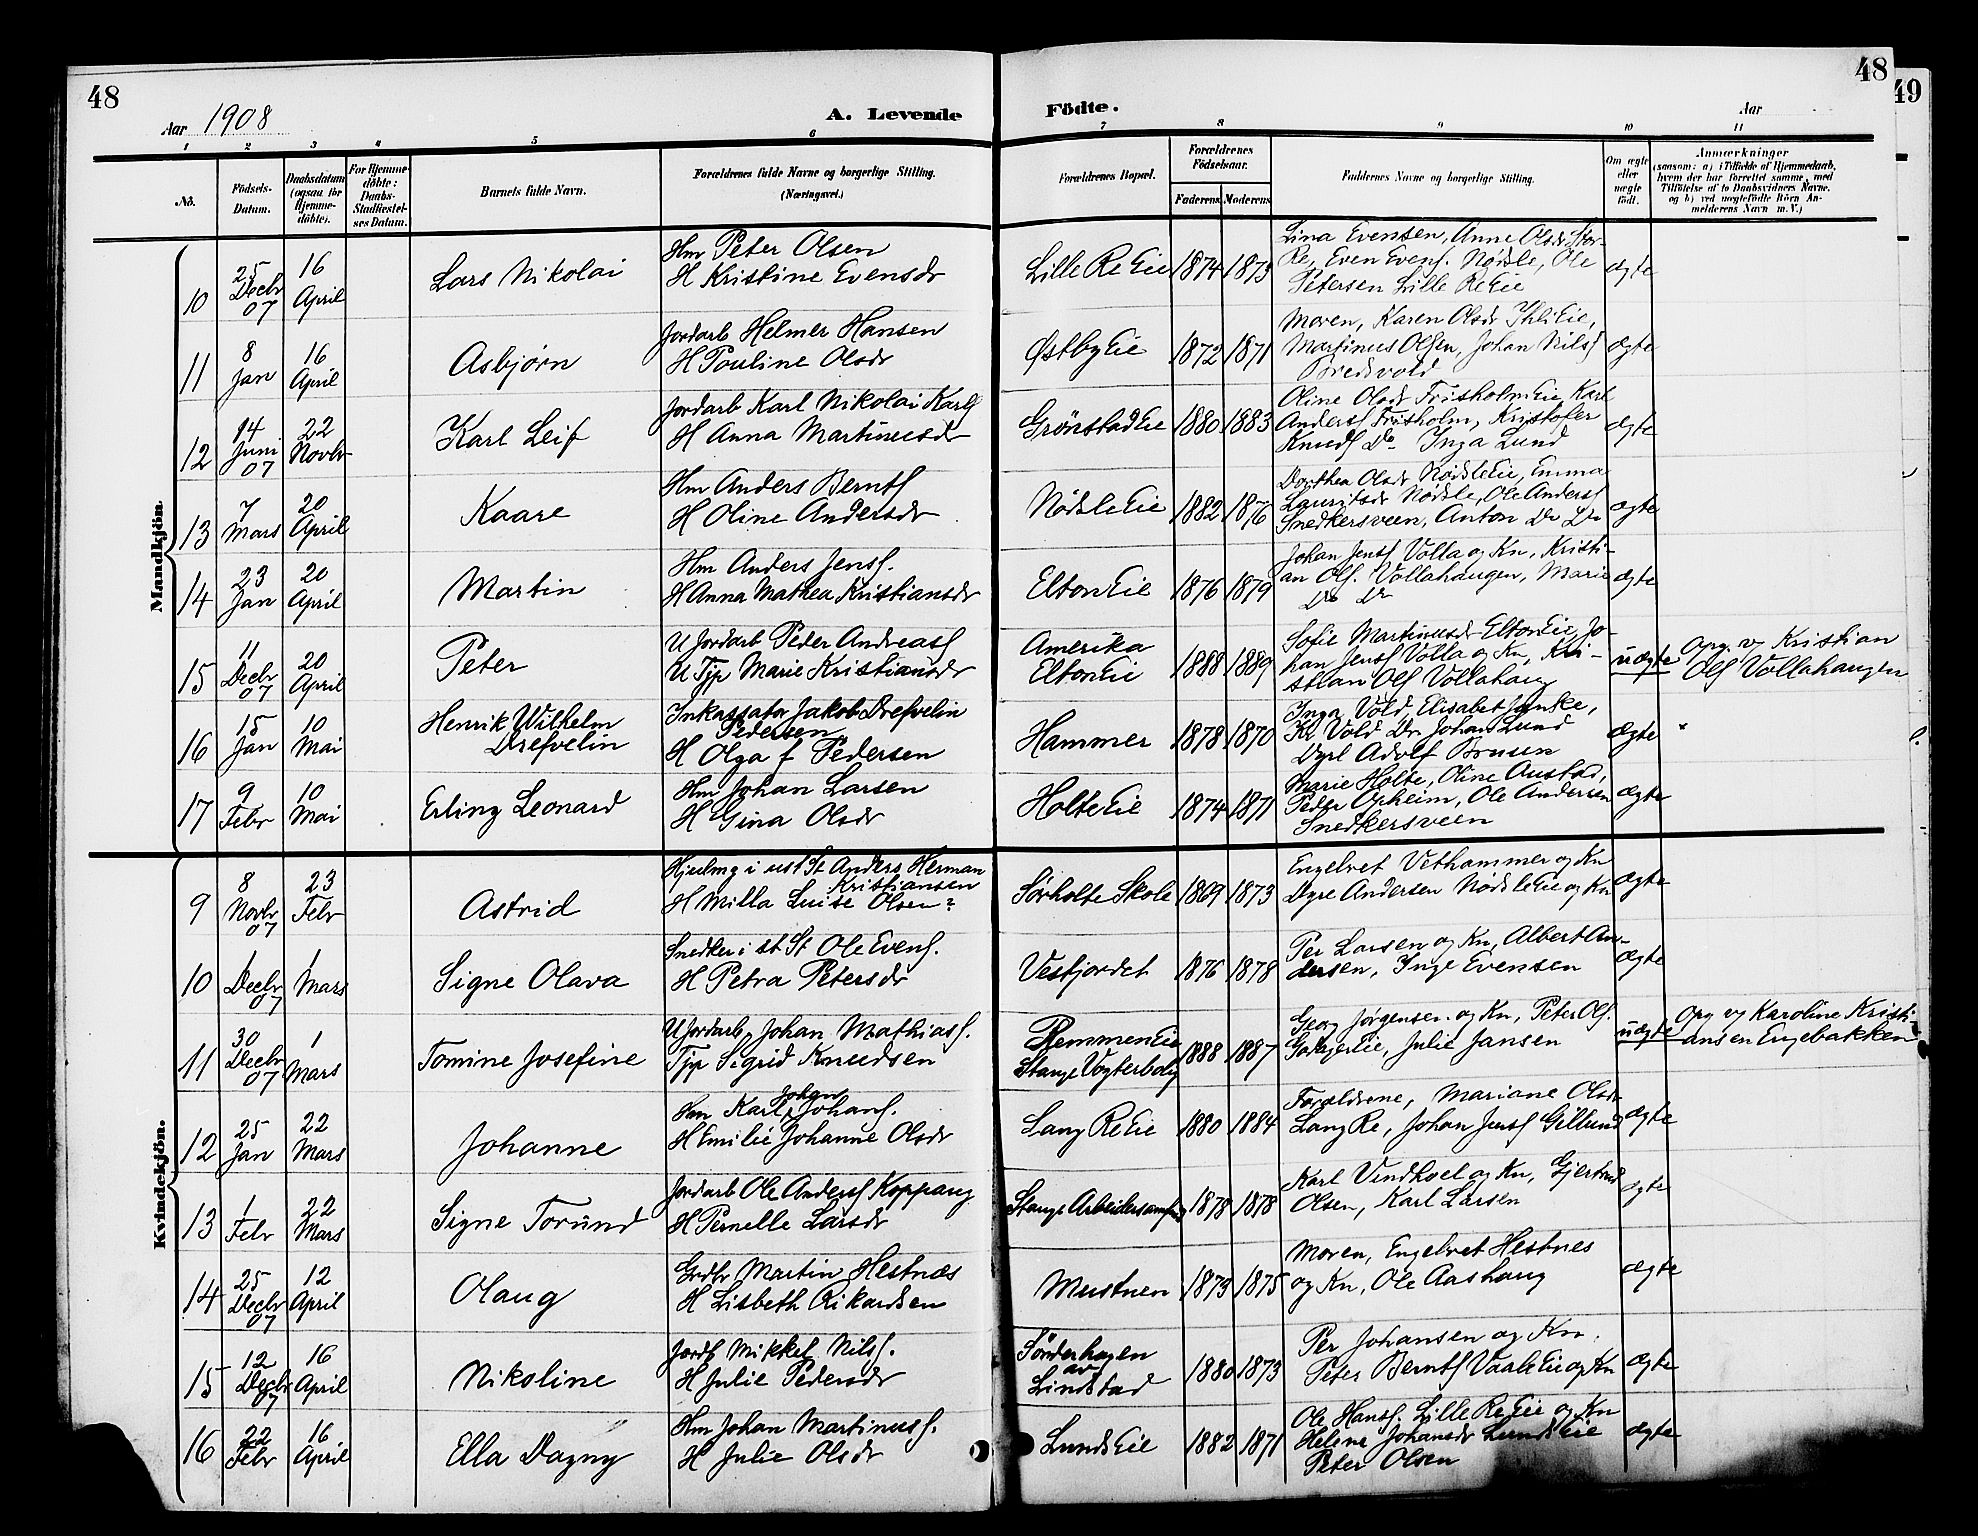 48
Aar 1908
A. Levende
Födte.
Aar
48
49
1 2 3 4 5 6 7 8 9 10 11
No.
Födsels-Datum.
Daabsdatum (ogsaa for Hjemme-döbte).
For Hjemme-döbte: Daabs-Stadfæstel-ses Datum.
Barnets fulde Navn.
Forældrenes fulde Navne og borgerlige Stilling. (Næringsvei.)
Forældrenes Bopæl.
Forældrenes Födselsaar.
Faderens Moderens
Faddernes Navne og borgerlige Stilling.
Om ægte eller uægte födt.
Anmærkninger
(saasom: a) i Tilfælde af Hjemmedaab, hvem der har forrettet samme, med Tilföielse af to Daabsvidners Navne, og b) ved uægtefödte Börn An-melderens Navn m.V.)
Mandkjön.
10 25 Decbr 07 16 April Lars Nikolai Hm Peter Olsen
H Kristine Evensdr Lille Re Eie 1874 1873 Lina Evensen, Anne Olsdr Stor-
Re, Even Evens. Nødsle, Ole
Petersen Lille Re Eie ægte
11 8 Jan 16 April Asbjørn Jordarb Helmer Hansen
H Pauline Olsdr Østby Eie 1872 1871 Moren, Karen Olsdr Ihle Eie,
Martinus Olsen, Johan Nils
Bredsvold ægte
12 14 Juni 07 22 Novbr Karl Leif Jordarb Karl Nikolai Karls
H Anna Martinusdr Grønstad Eie 1880 1883 Oline Olsdr Frisholm Eie, Karl
Anders Frisholm, Kristofer
Knuds Do Inga Lund ægte
13 7 Mars 20 April Kaare Hm Anders Bernts
H Oline Andersdr Nødsle Eie 1882 1876 Dorthea Olsdr Nødsle Eie, Emma
Lauritsdr Nødsle, Ole Anders
Snedkersveen, Anton Do Do ægte
14 23 Jan 20 April Martin Hm Anders Jens.
H Anna Mathea Kristiansdr Elton Eie 1876 1879 Johan Jens Volla og Kn, Kristi-
an Ols. Vollahaugen, Marie
Do Do ægte
15 11 Decbr 07 20 April Peter U Jordarb Peder Andreas
U Tjp Marie Kristiansdr Amerika
Elton Eie 1888 1889 Sofie Martinusdr Elton Eie, Jo-
han Jens Volla og Kn, Kri-
stian Ols Vollahaug uægte Opg. v Kristian
Ols Vollahaugen
16 15 Jan 10 Mai Henrik Wilhelm
Drefvelin Inkassator Jakob Drefvelin
Pedersen
H Olga f Pedersen Hammer 1878 1870 Inga Vold, Elisabet Janke,
Kr Vold Dr Johan Lund
Dyrl Adolf Brusen ægte
17 9 Febr 10 Mai Erling Leonard Hm Johan Larsen
H Gina Olsdr Holte Eie 1874 1871 Marie Holte, Oline Austad,
Peder Opheim, Ole Andersen
Snedkersveen ægte
Kvindekjön.
9 8 Novbr 07 23 Febr Astrid Hjulmg i ust St Anders Herman
Kristiansen
H Milla Luise Olsen Sørholte Skole 1869 1873 Engebret Vethammer og Kn
Dyre Andersen Nødsle Eie og Kn ægte
10 1 Decbr 07 1 Mars Signe Olava Snedker i st St Ole Evens.
H Petra Petersdr Vesfjordet 1876 1878 Per Larsen og Kn, Albert An-
dersen, Inge Evensen ægte
11 30 Decbr 07 1 Mars Tomine Josefine U Jordarb, Johan Mathias.
Tjp Sigrid Knudsen Remmen Eie
Stange Vogterbolig 1888 1887 Georg Jørgensen og Kn, Peter Ols.
Julie Jansen uægte Opg v Karoline Kristi-
ansen Engebakken
12 25 Jan 22 Mars Johanne Hm Karl Johan Johans.
H Emilie Johanne Olsdr Lang Re Eie 1880 1884 Forældrene, Mariane Olsdr
Lang Re, Johan Jens Gillund ægte
13 1 Febr 22 Mars Signe Torund Jordarb Ole Anders Koppang
H Pernelle Larsdr Stange Arbeidersamfund 1878 1878 Karl Vindhoel og Kn, Gjertrud
Olsen, Karl Larsen ægte
14 25 Decbr 07 12 April Olaug Grdbr Martin Hestnæs
H Lisbeth Rikardsen Mustnen 1873 1875 Moren, Engebret Hestnes
og Kn, Ole Aashaug ægte
15 12 Decbr 07 16 April Nikoline Jordb Mikkel Nils.
H Julie Pedersdr Sönderhagen
av
Lindstad 1880 1873 Per Johansen og Kn.
Peter Bernts Vaale Eie og Kn ægte
16 22 Febr 16 April Ella Dagny Hm Johan Martinus.
H Julie Olsdr Lunds Eie 1882 1871 Ole Hans. Lille Re Eie og Kn
Helene Johansdr Lunds Eie
Peter Olsen ægte